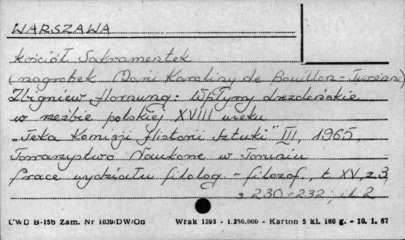 WARSZAWA
Kościół Sakramentek
(nagrobek Marii Karoliny de Bouillon-Turenne)
Zbigniew Hornung: Wpływy drezdeńskie
w rzeźbie polskiej XVIII wieku
"Teka Komisji Historii Sztuki" III, 1965,
Towarzystwo Naukowe w Toruniu
Prace wydziału filolog.-filozof., t. XV, z. 3
s 230-232; il. 2
CWD B-156 Zam. Nr 1039/DW/Od Wrak 1392 - 1.250.000 - Karton 5 kl. 180 g. - 10. 1. 67